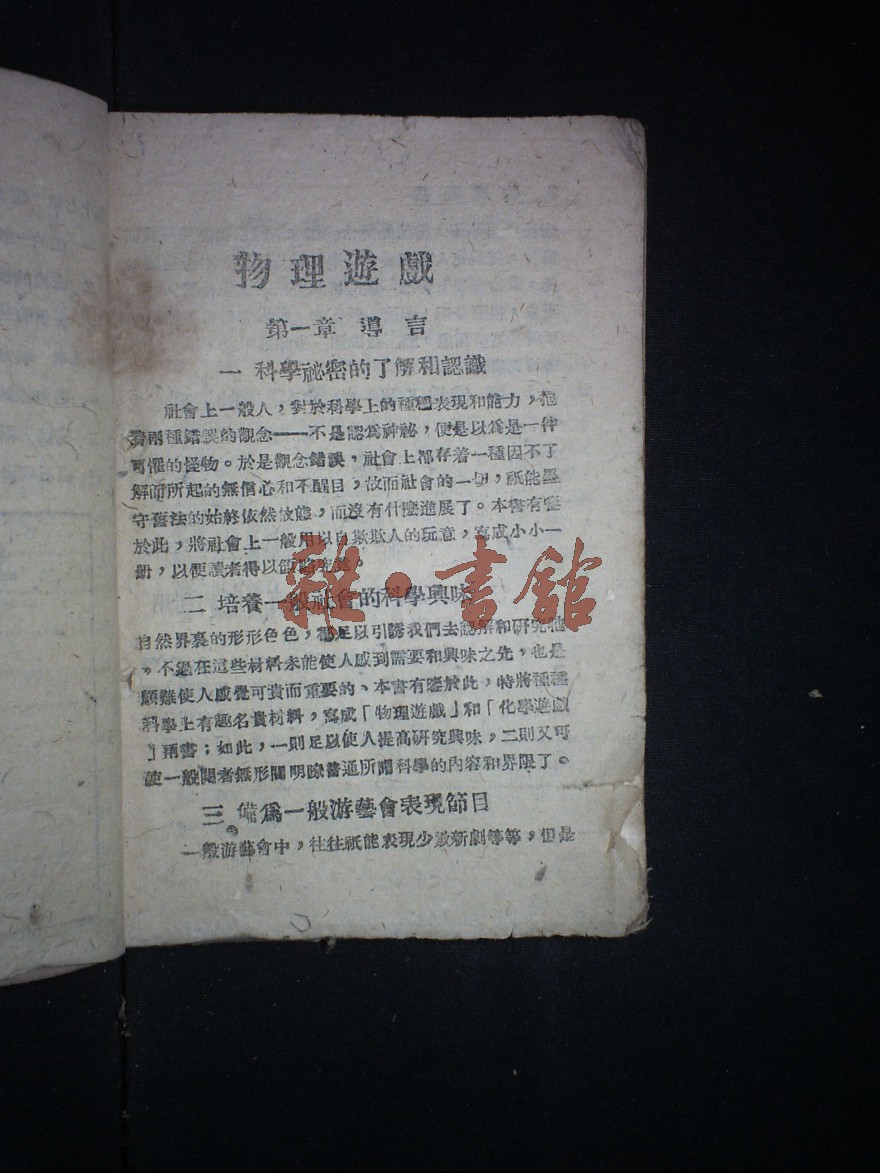 物理遊戲
第一章 導言
一 科學祕密的了解和認識
社會上一般人，對於科學上的種種表現和能力，抱
着兩種錯誤的觀念——不是認爲神祕，便是以爲是一件
可懼的怪物。於是觀念錯誤，社會上都存着一種因不了
解而所起的無信心和不醒目，故而社會的一切，祇能墨
守舊法的始終依然故態，而沒有什麼進展了。本書有鑒
於此，將社會上一般用以自欺欺人的玩意，寫成小小一
册，以便讀者得以
二 培養一般社會的科學興味
自然界裏的形形色色，都足以引誘我們去認解和研究牠
，不過在這些材料未能使人感到需要和興味之先，也是
頗難使人感覺可貴而重要的、本書有鑒於此，特將種種
科學上有趣名貴材料，寫成「物理遊戲」和「化學遊戲
」兩書；如此，一則足以使人提高研究興味，二則又可
使一般閱者無形間明瞭普通所謂科學的內容和界限了。
三 備爲一般游藝會表現節目
一般游藝會中，往往祇能表現少數新劇等等，但是
雜·書館